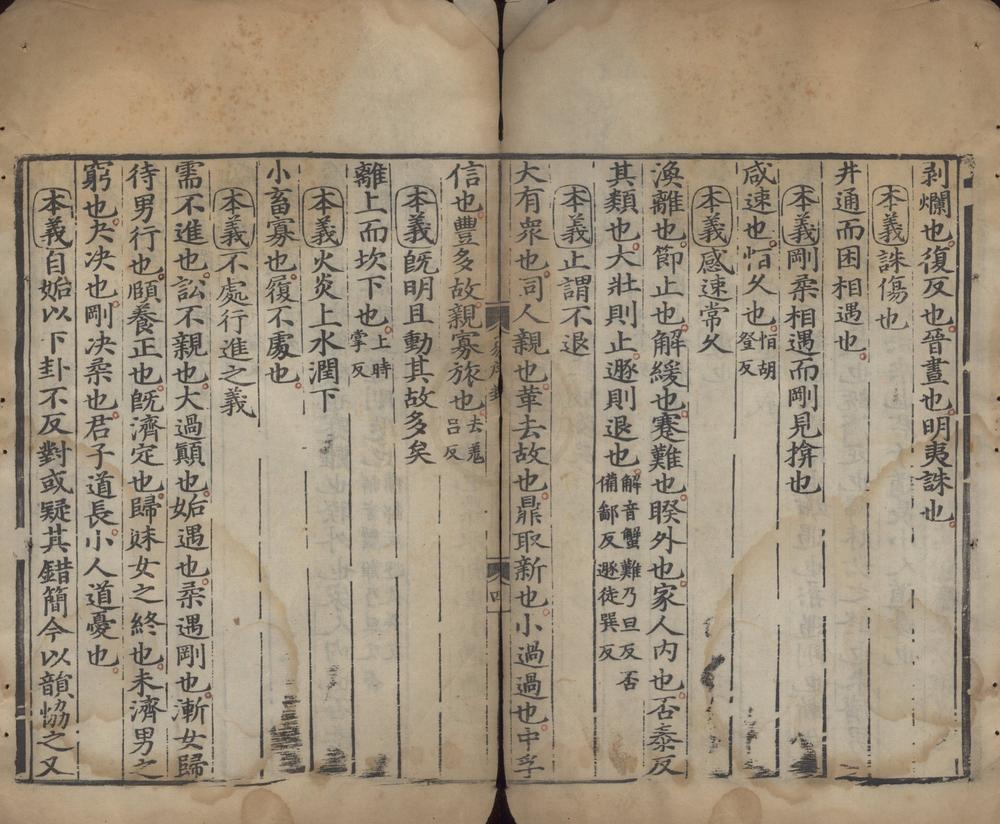 剥爛也復反也晉晝也明夷誅也
本義誅傷也
井通而困相遇也
本義剛柔相遇而剛見揜也
咸速也恒久也恒胡登反
本義感速常久
渙離也節止也解緩也蹇難也睽外也家人内也否泰反
其類也大壯則止遯則退也解音蟹難乃旦反否備鄙反遯徒巽反
本義止謂不退
大有衆也同人親也革去故也鼎取新也小過過也中孚
信也豐多故親寡旅也去羗呂反
本義旣明且動其故多矣
離上而坎下也上時掌反
本義火炎上水潤下
小畜寡也履不處也
本義不處行進之義
需不進也訟不親也大過顛也姤遇也柔遇剛也漸女歸
待男行也頤養正也旣濟定也歸妹女之終也未濟男之
窮也夬決也剛決柔也君子道長小人道憂也
本義自姤以下卦不反對或疑其錯簡今以韻恊之又